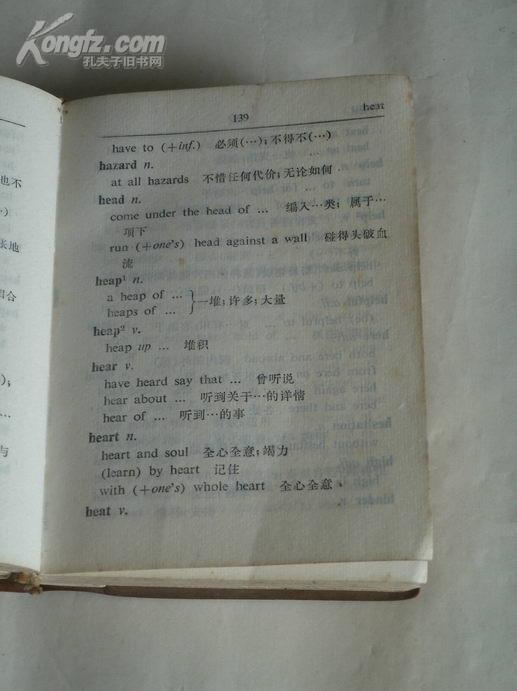 Kongfz.com
孔夫子旧书网
139 heat
have to (+inf.) 必须(…);不得不(…)
hazard n.
at all hazards 不惜任何代价;无论如何
head n.
come under the head of ... 编入…类;属于…
项下
run (+one's) head against a wall 碰得头破血
流
heap¹ n.
a heap of ...
heaps of ... }一堆;许多;大量
heap² v.
heap up ... 堆积
hear v.
have heard say that ... 曾听说
hear about ... 听到关于…的详情
hear of ... 听到…的事
heart n.
heart and soul 全心全意;竭力
(learn) by heart 记住
with (+one's) whole heart 全心全意
heat v.
也不
张地
与